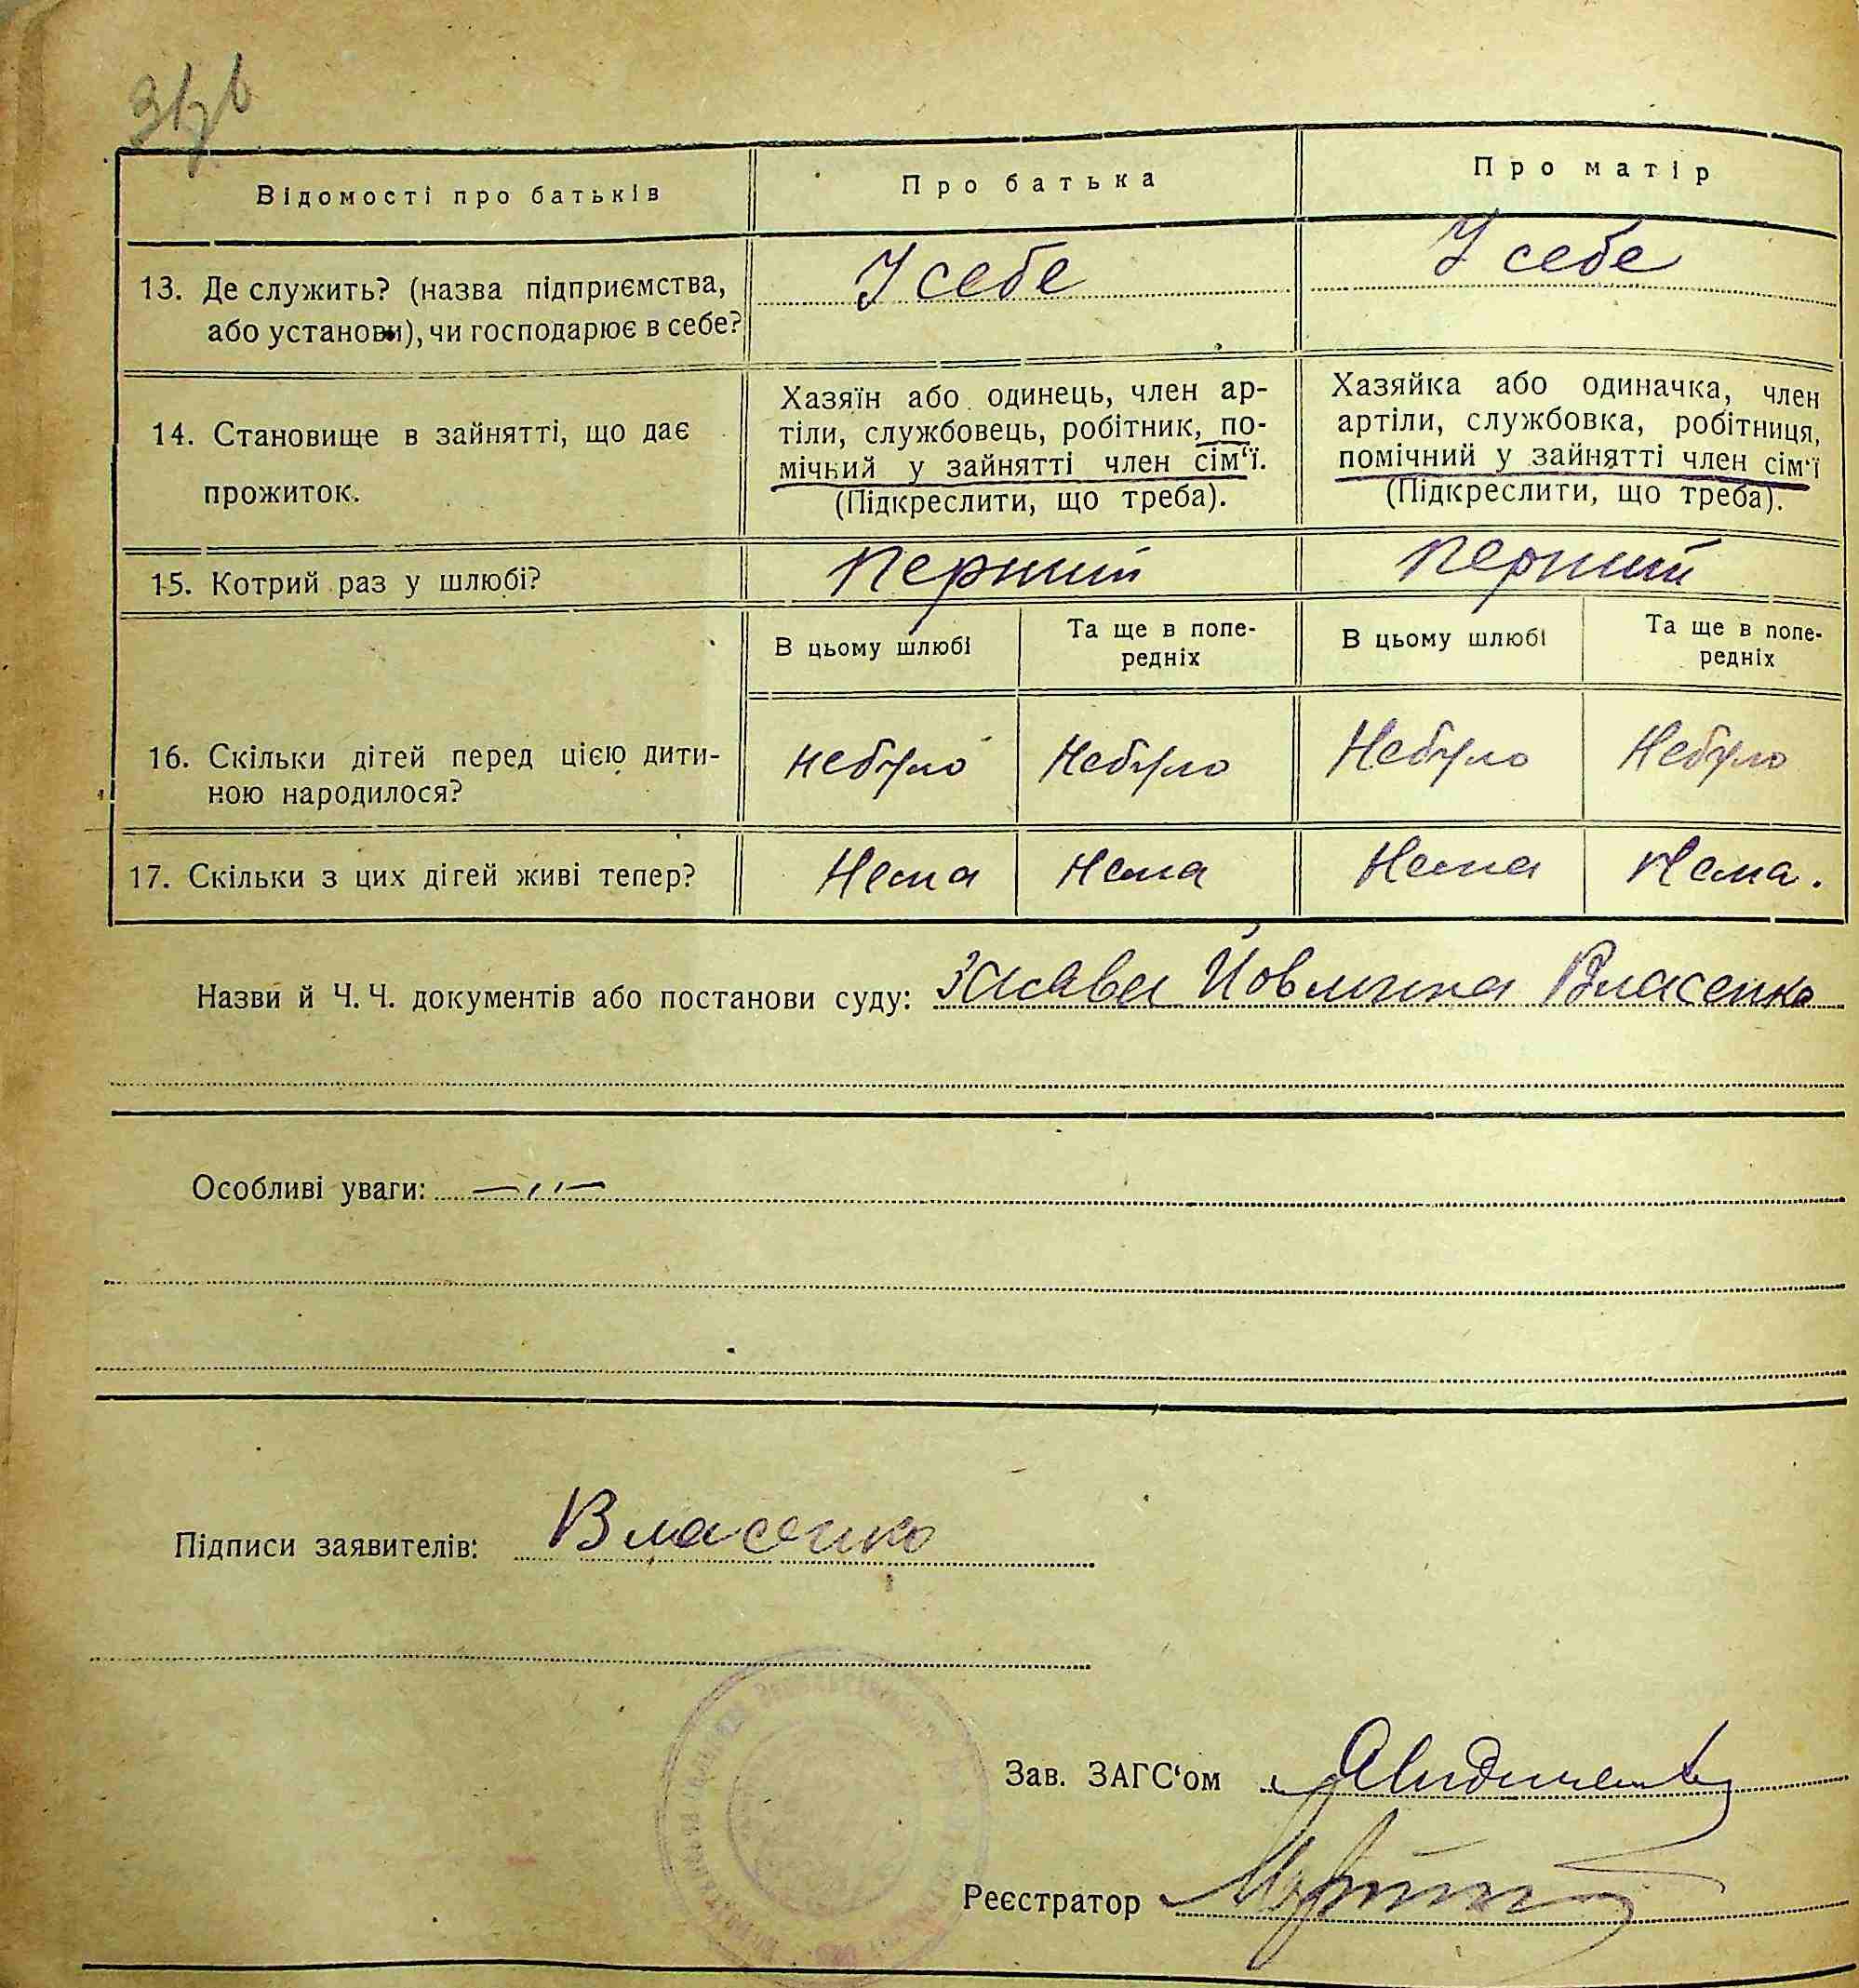 Відомості про батьків
Про батька
Про матір
13. Де служить? (назва підприємства,
або установи), чи господарює в себе?
У себе
У себе
14. Становище в зайнятті, що дає
прожиток.
Хазяїн або одинець, член ар-
тіли, службовець, робітник, по-
мічний у зайнятті член сім‘ї.
(Підкреслити, що треба).
Хазяйка або одиначка, член
артіли, службовка, робітниця,
помічний у зайнятті член сім‘ї
(Підкреслити, що треба).
15. Котрий раз у шлюбі?
Перший
Перший
В цьому шлюбі
Та ще в попе-
редніх
В цьому шлюбі
Та ще в попе-
редніх
16. Скільки дітей перед цією дити-
ною народилося?
небуло
Небуло
Небуло
Небуло
17. Скільки з цих дітей живі тепер?
Нема
Нема
Нема
Нема.
Назви й Ч. Ч. документів або постанови суду: Заява Власенко
Особливі уваги: —,,—
Підписи заявителів: Власенко
Зав. ЗАГС‘ом
Реєстратор